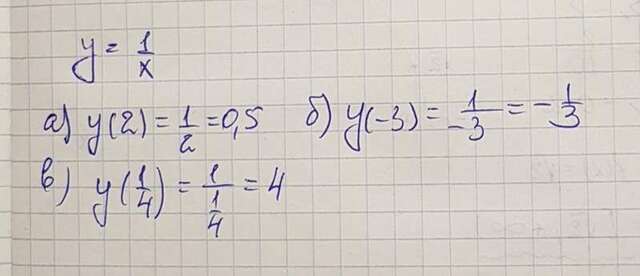 y = 1/x
а) y(2) = 1/2 = 0,5 б) y(-3) = 1/-3 = -1/3
в) y(1/4) = 1/(1/4) = 4